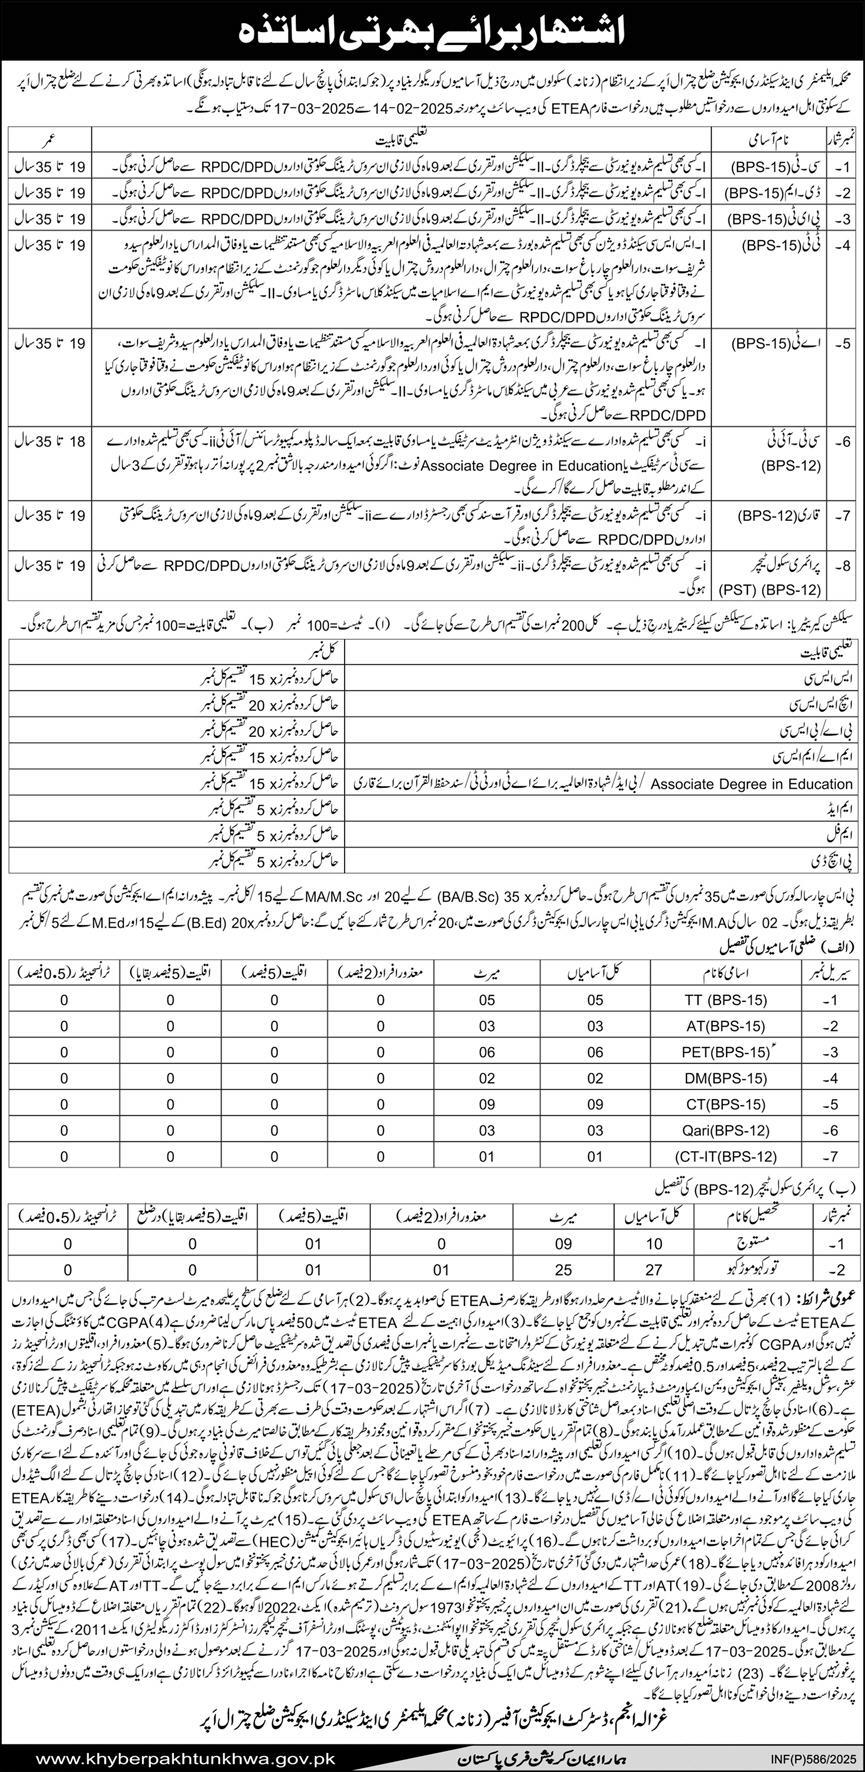 اشتہار برائے بھرتی اساتذہ
محکمہ ایلیمنٹری اینڈ سیکنڈری ایجوکیشن ضلع چترال اَپر کے زیر انتظام (زنانہ) سکولوں میں درج ذیل آسامیوں کو ریگولر بنیاد پر (جو کہ ابتدائی پانچ سال کے لئے ناقابل تبادلہ ہونگی) اساتذہ بھرتی کرنے کے لئے ضلع چترال اَپر
کے سکونتی اہل امیدواروں سے درخواستیں مطلوب ہیں درخواست فارم ETEA کی ویب سائٹ پر مورخہ 14-02-2025 سے 17-03-2025 تک دستیاب ہونگے۔
نمبر شمار نام آسامی تعلیمی قابلیت عمر
1۔ سی۔ٹی (BPS-15) I۔ کسی بھی تسلیم شدہ یونیورسٹی سے بیچلر ڈگری۔ II۔ سلیکشن اور تقرری کے بعد 9 ماہ کی لازمی ان سروس ٹریننگ حکومتی اداروں RPDC/DPD سے حاصل کرنی ہوگی۔ 19 تا 35 سال
2۔ ڈی۔ایم (BPS-15) I۔ کسی بھی تسلیم شدہ یونیورسٹی سے بیچلر ڈگری۔ II۔ سلیکشن اور تقرری کے بعد 9 ماہ کی لازمی ان سروس ٹریننگ حکومتی اداروں RPDC/DPD سے حاصل کرنی ہوگی۔ 19 تا 35 سال
3۔ پی ای ٹی (BPS-15) I۔ کسی بھی تسلیم شدہ یونیورسٹی سے بیچلر ڈگری۔ II۔ سلیکشن اور تقرری کے بعد 9 ماہ کی لازمی ان سروس ٹریننگ حکومتی اداروں RPDC/DPD سے حاصل کرنی ہوگی۔ 19 تا 35 سال
4۔ ٹی ٹی (BPS-15) I۔ ایس ایس سی سیکنڈ ڈویژن کسی بھی تسلیم شدہ بورڈ سے بمعہ شہادۃ العالمیہ فی العلوم العربیہ والاسلامیہ کسی بھی مستند تنظیمات یا وفاق المدارس یا دارلعلوم سیدو 19 تا 35 سال
شریف سوات، دارالعلوم چارباغ سوات، دارالعلوم چترال، دارالعلوم دروش چترال یا کوئی دیگر دارالعلوم جو گورنمنٹ کے زیر انتظام ہو اور اس کا نوٹیفکیشن حکومت
نے وقتاً فوقتاً جاری کیا ہو یا کسی بھی تسلیم شدہ یونیورسٹی سے ایم اے اسلامیات میں سیکنڈ کلاس ماسٹر ڈگری یا مساوی۔ II۔ سلیکشن اور تقرری کے بعد 9 ماہ کی لازمی ان
سروس ٹریننگ حکومتی اداروں RPDC/DPD سے حاصل کرنی ہوگی۔
5۔ اے ٹی (BPS-15) I۔ کسی بھی تسلیم شدہ یونیورسٹی سے بیچلر ڈگری بمعہ شہادۃ العالمیہ فی العلوم العربیہ والاسلامیہ کسی مستند تنظیمات یا وفاق المدارس یا دارلعلوم سیدو شریف سوات، 19 تا 35 سال
دارلعلوم چارباغ سوات، دارلعلوم چترال، دارلعلوم دروش چترال یا کوئی اور دارلعلوم جو گورنمنٹ کے زیر انتظام ہو اور اس کا نوٹیفکیشن حکومت نے وقتاً فوقتاً جاری کیا
ہو۔ یا کسی بھی تسلیم شدہ یونیورسٹی سے عربی میں سیکنڈ کلاس ماسٹر ڈگری یا مساوی۔ II۔ سلیکشن اور تقرری کے بعد 9 ماہ کی لازمی ان سروس ٹریننگ حکومتی اداروں
RPDC/DPD سے حاصل کرنی ہوگی۔
6۔ سی ٹی۔آئی ٹی (BPS-12) i۔ کسی بھی تسلیم شدہ ادارے سے سیکنڈ ڈویژن انٹرمیڈیٹ سرٹیفکیٹ یا مساوی قابلیت بمعہ ایک سالہ ڈپلومہ کمپیوٹر سائنس/آئی ٹی ii۔ کسی بھی تسلیم شدہ ادارے 18 تا 35 سال
سے سی ٹی سرٹیفکیٹ یا Associate Degree in Education نوٹ: اگر کوئی امیدوار مندرجہ بالا شق نمبر 2 پر پورا نہ اُتر رہا ہو تو تقرری کے 3 سال
کے اندر مطلوبہ قابلیت حاصل کرے گا/کرے گی۔
7۔ قاری (BPS-12) i۔ کسی بھی تسلیم شدہ یونیورسٹی سے بیچلر ڈگری اور قرآت سند کسی بھی رجسٹرڈ ادارے سے ii۔ سلیکشن اور تقرری کے بعد 9 ماہ کی لازمی ان سروس ٹریننگ حکومتی 19 تا 35 سال
اداروں RPDC/DPD سے حاصل کرنی ہوگی۔
8۔ پرائمری سکول ٹیچر (PST) (BPS-12) i۔ کسی بھی تسلیم شدہ یونیورسٹی سے بیچلر ڈگری۔ ii۔ سلیکشن اور تقرری کے بعد 9 ماہ کی لازمی ان سروس ٹریننگ حکومتی اداروں RPDC/DPD سے حاصل کرنی 19 تا 35 سال
ہوگی۔
سلیکشن کریٹیریا: اساتذہ کے سلیکشن کیلئے کریٹیریا درج ذیل ہے۔ کل 200 نمبرات کی تقسیم اس طرح سے کی جائے گی۔ (ا)۔ ٹیسٹ=100 نمبر (ب)۔ تعلیمی قابلیت=100 نمبر جس کی مزید تقسیم اس طرح ہوگی۔
تعلیمی قابلیت کل نمبر
ایس ایس سی حاصل کردہ نمبرز x 15 تقسیم کل نمبر
ایچ ایس ایس سی حاصل کردہ نمبرز x 20 تقسیم کل نمبر
بی اے/بی ایس سی حاصل کردہ نمبرز x 20 تقسیم کل نمبر
ایم اے/ایم ایس سی حاصل کردہ نمبرز x 15 تقسیم کل نمبر
Associate Degree in Education /بی ایڈ/شہادۃ العالمیہ برائے اے ٹی اور ٹی ٹی/سند حفظ القرآن برائے قاری حاصل کردہ نمبرز x 15 تقسیم کل نمبر
ایم ایڈ حاصل کردہ نمبرز x 5 تقسیم کل نمبر
ایم فل حاصل کردہ نمبرز x 5 تقسیم کل نمبر
پی ایچ ڈی حاصل کردہ نمبرز x 5 تقسیم کل نمبر
بی ایس چار سالہ کورس کی صورت میں 35 نمبروں کی تقسیم اس طرح ہوگی۔ حاصل کردہ نمبر x 35 (BA/B.Sc) کے لیے 20 اور MA/M.Sc کے لیے 15/کل نمبر۔ پیشہ ورانہ ایم اے ایجوکیشن کی صورت میں نمبر کی تقسیم
بطریقہ ذیل ہوگی۔ 02 سال کی M.A ایجوکیشن ڈگری یا بی ایس چار سالہ کی ایجوکیشن ڈگری کی صورت میں، 20 نمبر اس طرح شمار کئے جائیں گے: حاصل کردہ نمبر 20x (B.Ed) کے لیے 15 اور M.Ed کے لئے 5/کل نمبر
(الف) ضلعی آسامیوں کی تفصیل
سیریل نمبر اسامی کا نام کل آسامیاں میرٹ معذور افراد (2 فیصد) اقلیت (5 فیصد) اقلیت (5 فیصد بقایا) ٹرانسجینڈر (0.5 فیصد)
1۔ TT (BPS-15) 05 05 0 0 0 0
2۔ AT(BPS-15) 03 03 0 0 0 0
3۔ PET(BPS-15) 06 06 0 0 0 0
4۔ DM(BPS-15) 02 02 0 0 0 0
5۔ CT(BPS-15) 09 09 0 0 0 0
6۔ Qari(BPS-12) 03 03 0 0 0 0
7۔ (CT-IT(BPS-12) 01 01 0 0 0 0
(ب) پرائمری سکول ٹیچر (BPS-12) کی تفصیل
نمبر شمار تحصیل کا نام کل آسامیاں میرٹ معذور افراد (2 فیصد) اقلیت (5 فیصد) اقلیت (5 فیصد بقایا) در ضلع ٹرانسجینڈر (0.5 فیصد)
1۔ مستوج 10 09 0 01 0 0
2۔ تورکہو موڑکہو 27 25 01 01 0 0
عمومی شرائط: (1) بھرتی کے لئے منعقد کیا جانے والا ٹیسٹ مرحلہ دار ہوگا اور طریقہ کار صرف ETEA کی صوابدید پر ہوگا۔ (2) ہر آسامی کے لئے ضلع کی سطح پر علیحدہ میرٹ لسٹ مرتب کی جائے گی جس میں امیدواروں
کے ETEA ٹیسٹ کے حاصل کردہ نمبر اور تعلیمی قابلیت کے نمبروں کو جمع کیا جائے گا۔ (3) امیدوار کی اہلیت کے لئے ETEA ٹیسٹ میں 50 فیصد پاس مارکس لینا ضروری ہے (4) CGPA میں کاؤنٹنگ کی اجازت
نہیں ہوگی اور CGPA کو نمبرات میں تبدیل کرنے کے لئے متعلقہ یونیورسٹی کے کنٹرولر امتحانات سے نمبرات یا نمبرات کی فیصدی کی تصدیق شدہ سرٹیفکیٹ حاصل کرنا ضروری ہوگا۔ (5) معذور افراد، اقلیتوں اور ٹرانسجینڈرز
کے لئے بالترتیب 2 فیصد، 5 فیصد اور 0.5 فیصد کوٹہ مختص ہے۔ معذور افراد کے لئے سٹینڈنگ میڈیکل بورڈ کا سرٹیفکیٹ پیش کرنا لازمی ہے بشرطیکہ وہ معذوری فرائض کی انجام دہی میں رکاوٹ نہ ہو جبکہ ٹرانسجینڈرز کے لئے زکوۃ،
عشر، سوشل ویلفیئر، سپیشل ایجوکیشن ویمن ایمپاورمنٹ ڈیپارٹمنٹ خیبر پختونخوا کے ساتھ درخواست کی آخری تاریخ (17-03-2025) تک رجسٹرڈ ہونا لازمی ہے اور اس سلسلے میں متعلقہ محکمہ کا سرٹیفکیٹ پیش کرنا لازمی
ہے۔ (6) اسناد کی جانچ پڑتال کے وقت اصلی تعلیمی اسناد بمعہ اصل شناختی کارڈ لانا لازمی ہے۔ (7) اگر اس اشتہار کے بعد حکومت وقت کی طرف سے بھرتی کے طریقہ کار میں تبدیلی کی گئی تو مجاز اتھارٹی بشمول (ETEA)
حکومت کے منظور شدہ قوانین کے مطابق عملدرآمد کی پابند ہوگی۔ (8) تمام تقرریاں حکومت خیبر پختونخوا کے مقرر کردہ قوانین وضوابط و طریقہ کار کے مطابق خالصتاً میرٹ کی بنیاد پر ہوں گی۔ (9) تمام تعلیمی اسناد صرف گورنمنٹ کی
تسلیم شدہ اداروں کی قابل قبول ہوں گی۔ (10) اگر کسی امیدوار کی تعلیمی اور پیشہ ورانہ اسناد بھرتی کے کسی مرحلے یا تعیناتی کے بعد جعلی پائی گئیں تو اس کے خلاف قانونی چارہ جوئی کی جائے گی اور آئندہ کے لئے اسے سرکاری
ملازمت کے لئے نااہل تصور کیا جائے گا۔ (11) نامکمل فارم کی صورت میں درخواست فارم خود بخود منسوخ تصور کیا جائے گا جس کے لئے کوئی اپیل منظور نہیں کی جائے گی۔ (12) اسناد کی جانچ پڑتال کے لئے الگ شیڈول
جاری کیا جائے گا اور آنے والے امیدواروں کو کوئی ٹی اے/ڈی اے نہیں دیا جائے گا۔ (13) امیدوار کو ابتدائی پانچ سال اسی سکول میں سروس کرنا ہوگی جو کہ ناقابل تبادلہ ہوگی۔ (14) درخواست دینے کا طریقہ کار ETEA
کی ویب سائٹ پر موجود ہے اور متعلقہ اضلاع کی خالی آسامیوں کی تفصیل درخواست فارم کے ساتھ ETEA کی ویب سائٹ پر دی گئی ہے۔ (15) میرٹ پر آنے والے امیدواروں کی اسناد متعلقہ ادارے سے تصدیق
کرائی جائے گی جس کے تمام اخراجات امیدواروں کو برداشت کرنا ہوں گے۔ (16) پرائیویٹ (نجی) یونیورسٹیوں کی ڈگریاں ہائیر ایجوکیشن کمیشن (HEC) سے تصدیق شدہ ہونی چاہئیں۔ (17) کسی بھی ڈگری پر کسی بھی
امیدوار کو دہرا فائدہ نہیں دیا جائے گا۔ (18) عمر کی حد اشتہار میں دی گئی آخری تاریخ (17-03-2025) تک شمار ہوگی اور عمر کی بالائی حد میں نرمی خیبر پختونخوا میں سول پوسٹ پر ابتدائی تقرری (عمر کی بالائی حد میں نرمی)
رولز 2008 کے مطابق دی جائے گی۔ (19) AT اور TT کے امیدواروں کے لئے شہادۃ العالمیہ کو ایم اے کے برابر تسلیم کرتے ہوئے مارکس ایم اے کے برابر دیئے جائیں گے۔ TT اور AT کے علاوہ کسی اور کیڈر کے
لئے شہادۃ العالمیہ کے کوئی نمبر نہیں ہوں گے۔ (21) تقرری کی صورت میں ان امیدواروں پر خیبر پختونخوا 1973 سول سرونٹ (ترمیم شدہ) ایکٹ، 2022 لاگو ہوگا۔ (22) تمام تقرریاں متعلقہ اضلاع کے ڈومیسائل کی بنیاد
پر ہوں گی۔ امیدوار کا ڈومیسائل متعلقہ ضلع کا ہونا لازمی ہے جبکہ پرائمری سکول ٹیچر کی تقرری خیبر پختونخوا اپوائنٹمنٹ، ڈیپوٹیشن، پوسٹنگ اور ٹرانسفر آف ٹیچر لیکچررز انسٹرکٹرز اور ڈاکٹرز ریگولیٹری ایکٹ 2011، کے سیکشن نمبر 3
کے مطابق ہوگی۔ 17-03-2025 کے بعد ڈومیسائل/شناختی کارڈ کے مستقل پتہ میں کسی قسم کی تبدیلی قابل قبول نہ ہوگی اور 17-03-2025 گزرنے کے بعد موصول ہونے والی درخواستوں اور حاصل کردہ تعلیمی اسناد
پر غور نہیں کیا جائے گا۔ (23) زنانہ امیدوار ہر آسامی کیلئے اپنے شوہر کے ڈومیسائل میں ایک کی بنیاد پر درخواست دے سکتی ہے اور نکاح نامہ کا اجراء نادرا سے کمپیوٹرائزڈ کرانا لازمی ہے اور ایک ہی وقت میں دونوں ڈومیسائل
پر درخواست دینے والی خواتین کو نااہل تصور کیا جائے گا۔
غزالہ انجم، ڈسٹرکٹ ایجوکیشن آفیسر (زنانہ) محکمہ ایلیمنٹری اینڈ سیکنڈری ایجوکیشن ضلع چترال اَپر
www.khyberpakhtunkhwa.gov.pk ہمارا ایمان کرپشن فری پاکستان INF(P)586/2025